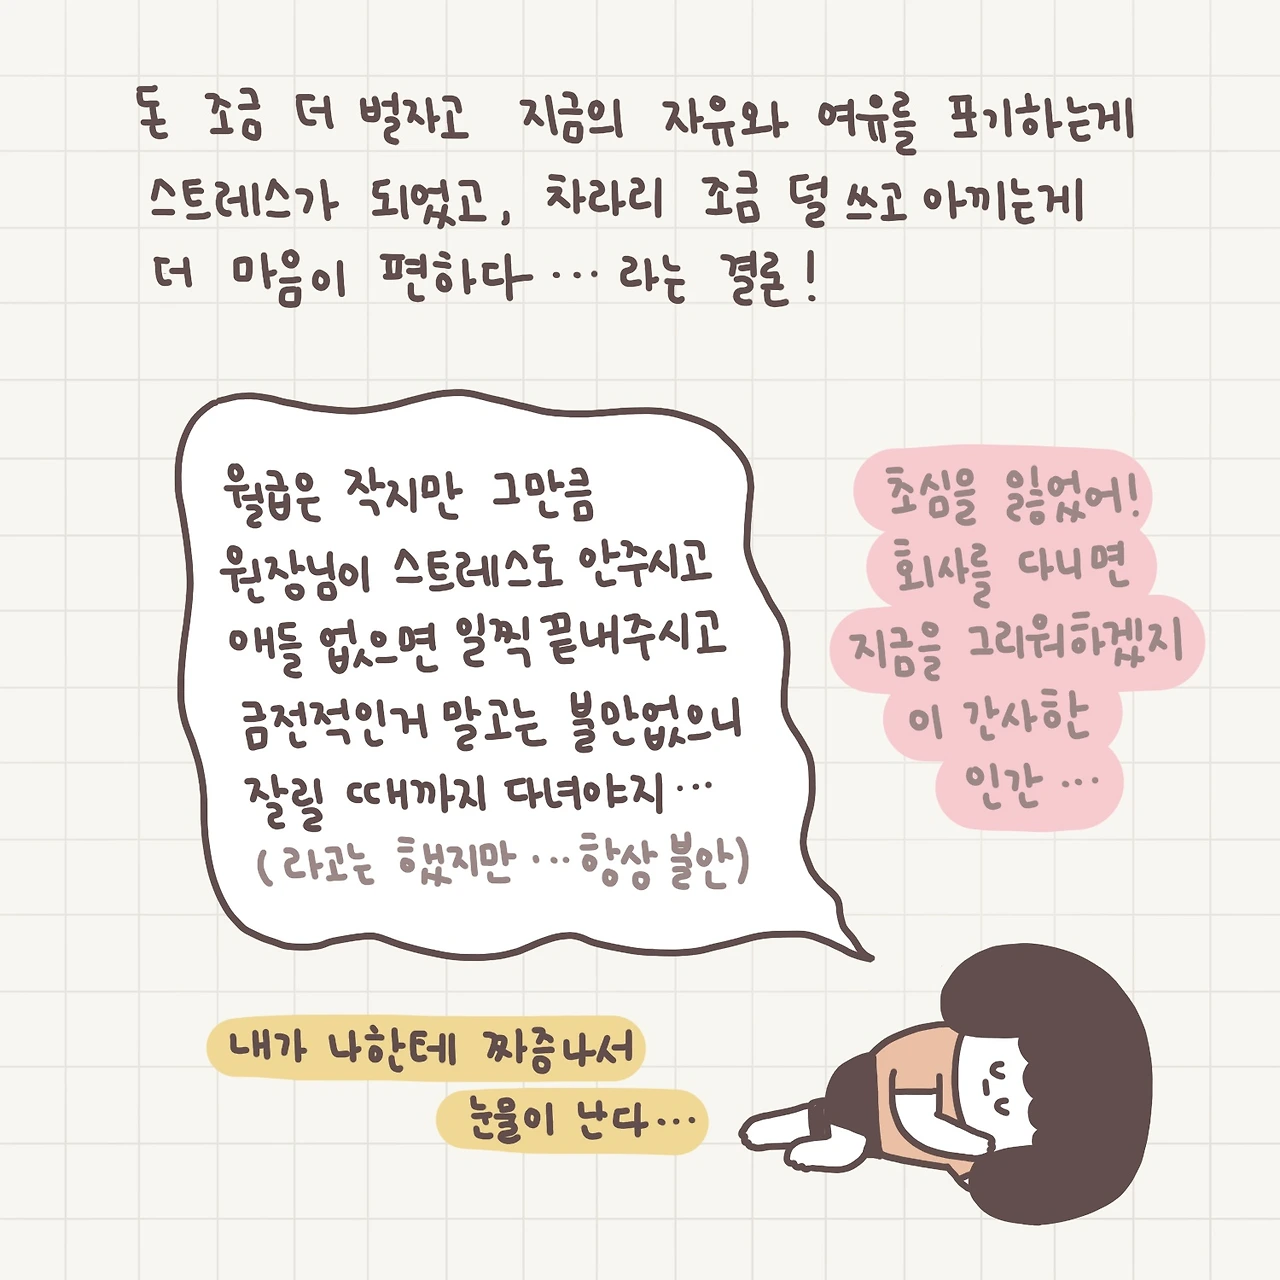 돈 조금 더 벌자고 지금의 자유와 여유를 포기하는게
스트레스가 되었고, 차라리 조금 덜 쓰고 아끼는게
더 마음이 편하다… 라는 결론!
월급은 작지만 그만큼
원장님이 스트레스도 안주시고
애들 없으면 일찍 끝내주시고
금전적인거 말고는 불만없으니
잘릴 때까지 다녀야지…
(라고는 했지만… 항상 불안)
초심을 잃었어!
회사를 다니면
지금을 그리워하겠지
이 간사한
인간…
내가 나한테 짜증나서
눈물이 난다…